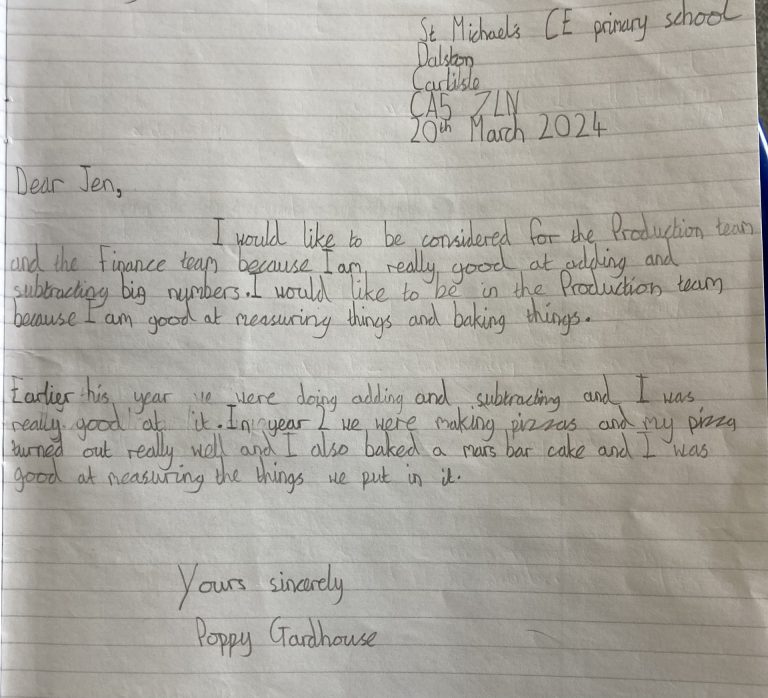 St Michael's CE primary school
Dalston
Carlisle
CA5 7LN
20th March 2024
Dear Jen,
I would like to be considered for the Production team
and the Finance team because I am really good at adding and
subtracting big numbers. I would like to be in the Production team
because I am good at measuring things and baking things.
Earlier this year we were doing adding and subtracting and I was
really good at it. In year 2 we were making pizzas and my pizza
turned out really well and I also baked a mars bar cake and I was
good at measuring the things we put in it.
Yours sincerely
Poppy Gardhouse